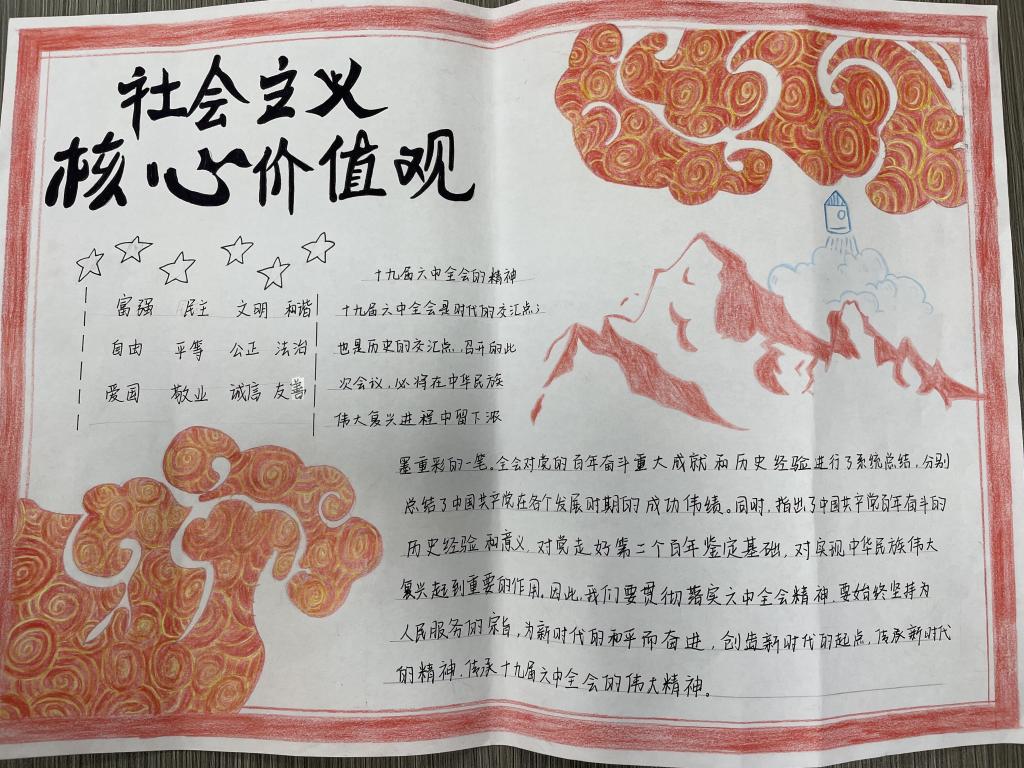 社会主义
核心价值观
富强 民主 文明 和谐
自由 平等 公正 法治
爱国 敬业 诚信 友善
十九届六中全会的精神
十九届六中全会是时代的交汇点;
也是历史的交汇点,召开的此
次会议,必将在中华民族
伟大复兴进程中留下浓
墨重彩的一笔。全会对党的百年奋斗重大成就和历史经验进行了系统总结,分别
总结了中国共产党在各个发展时期的成功伟绩。同时,指出了中国共产党百年奋斗的
历史经验和意义,对党走好第二个百年鉴定基础,对实现中华民族伟大
复兴起到重要的作用。因此,我们要贯彻落实六中全会精神,要始终坚持为
人民服务的宗旨,为新时代的和平而奋进,创造新时代的起点,传承新时代
的精神,传承十九届六中全会的伟大精神。